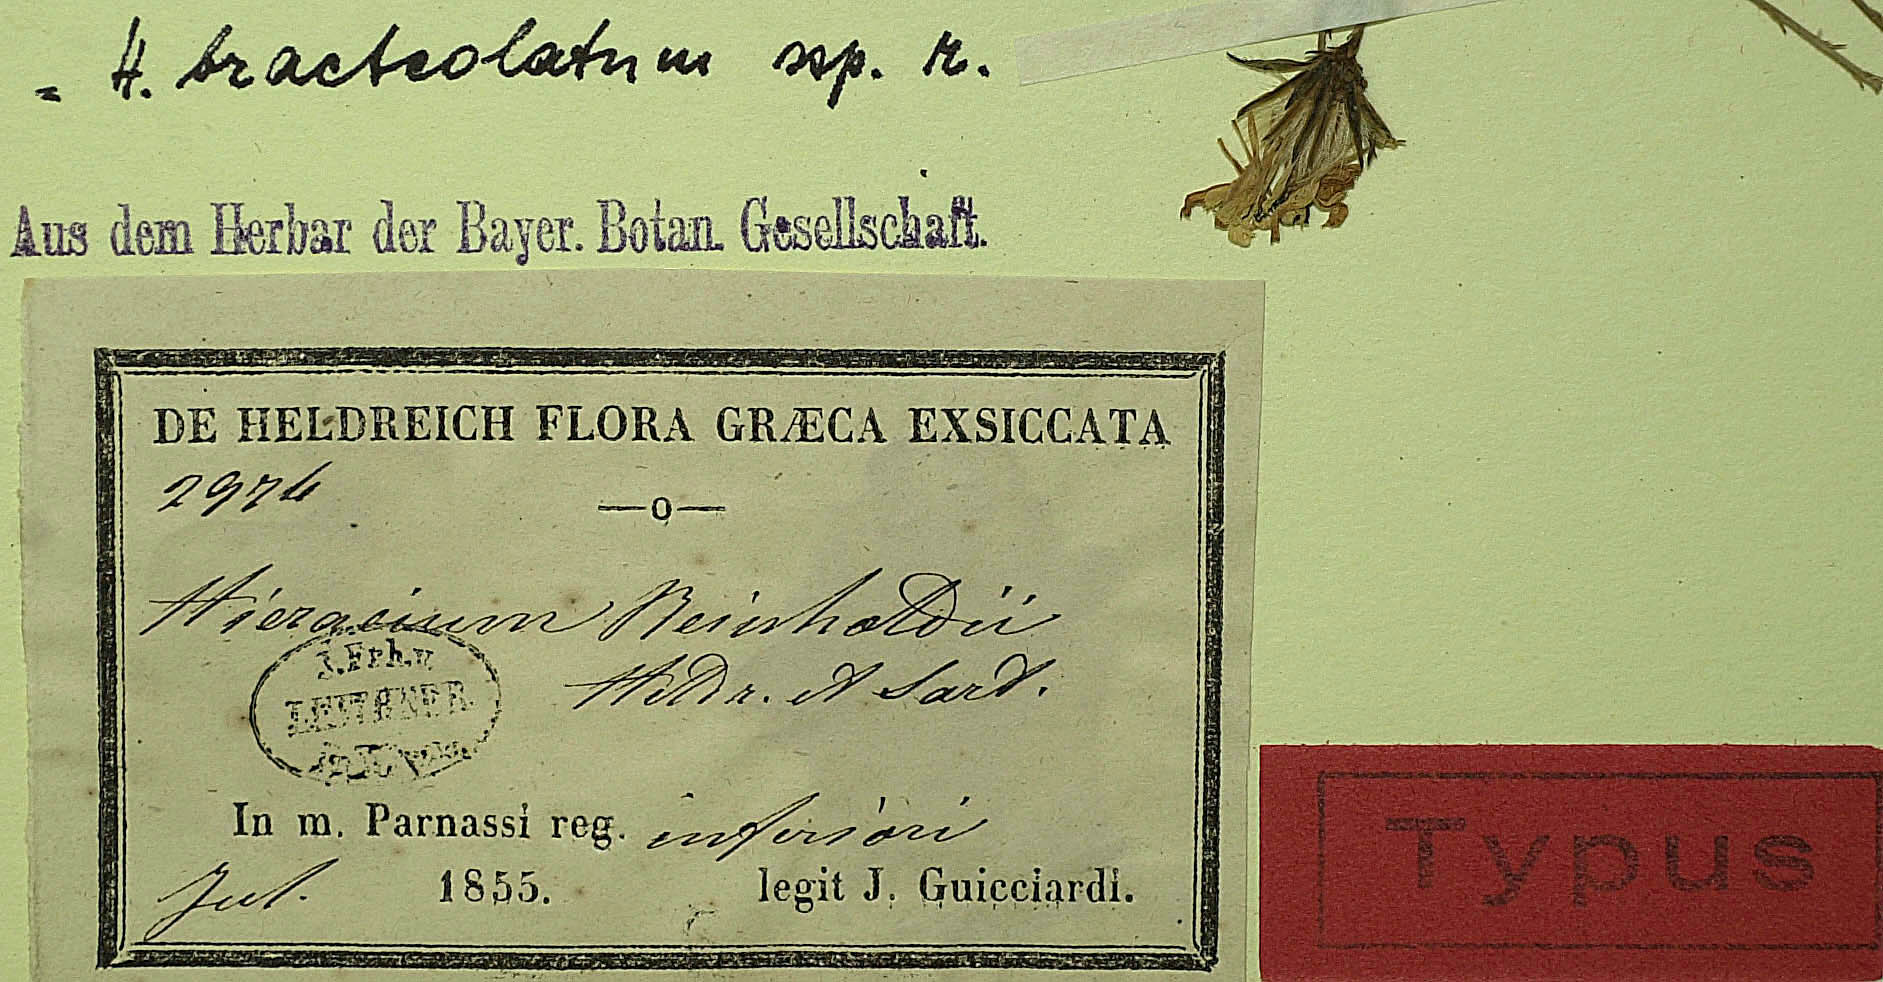 = H. bracteolatum ssp. r.
Aus dem Herbar der Bayer. Botan. Gesellschaft.
DE HELDREICH FLORA GRÆCA EXSICCATA
2976
—o—
Hieracium Reinholdii
J. Frh. v.
Heldr. et Sart.
In m. Parnassi reg. inferiori
Jul. 1855. legit J. Guicciardi.
Typus